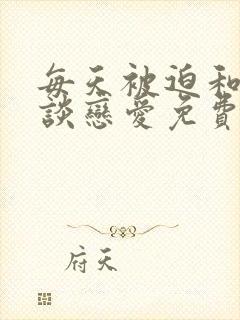 每天被迫和
談戀愛免費
府天